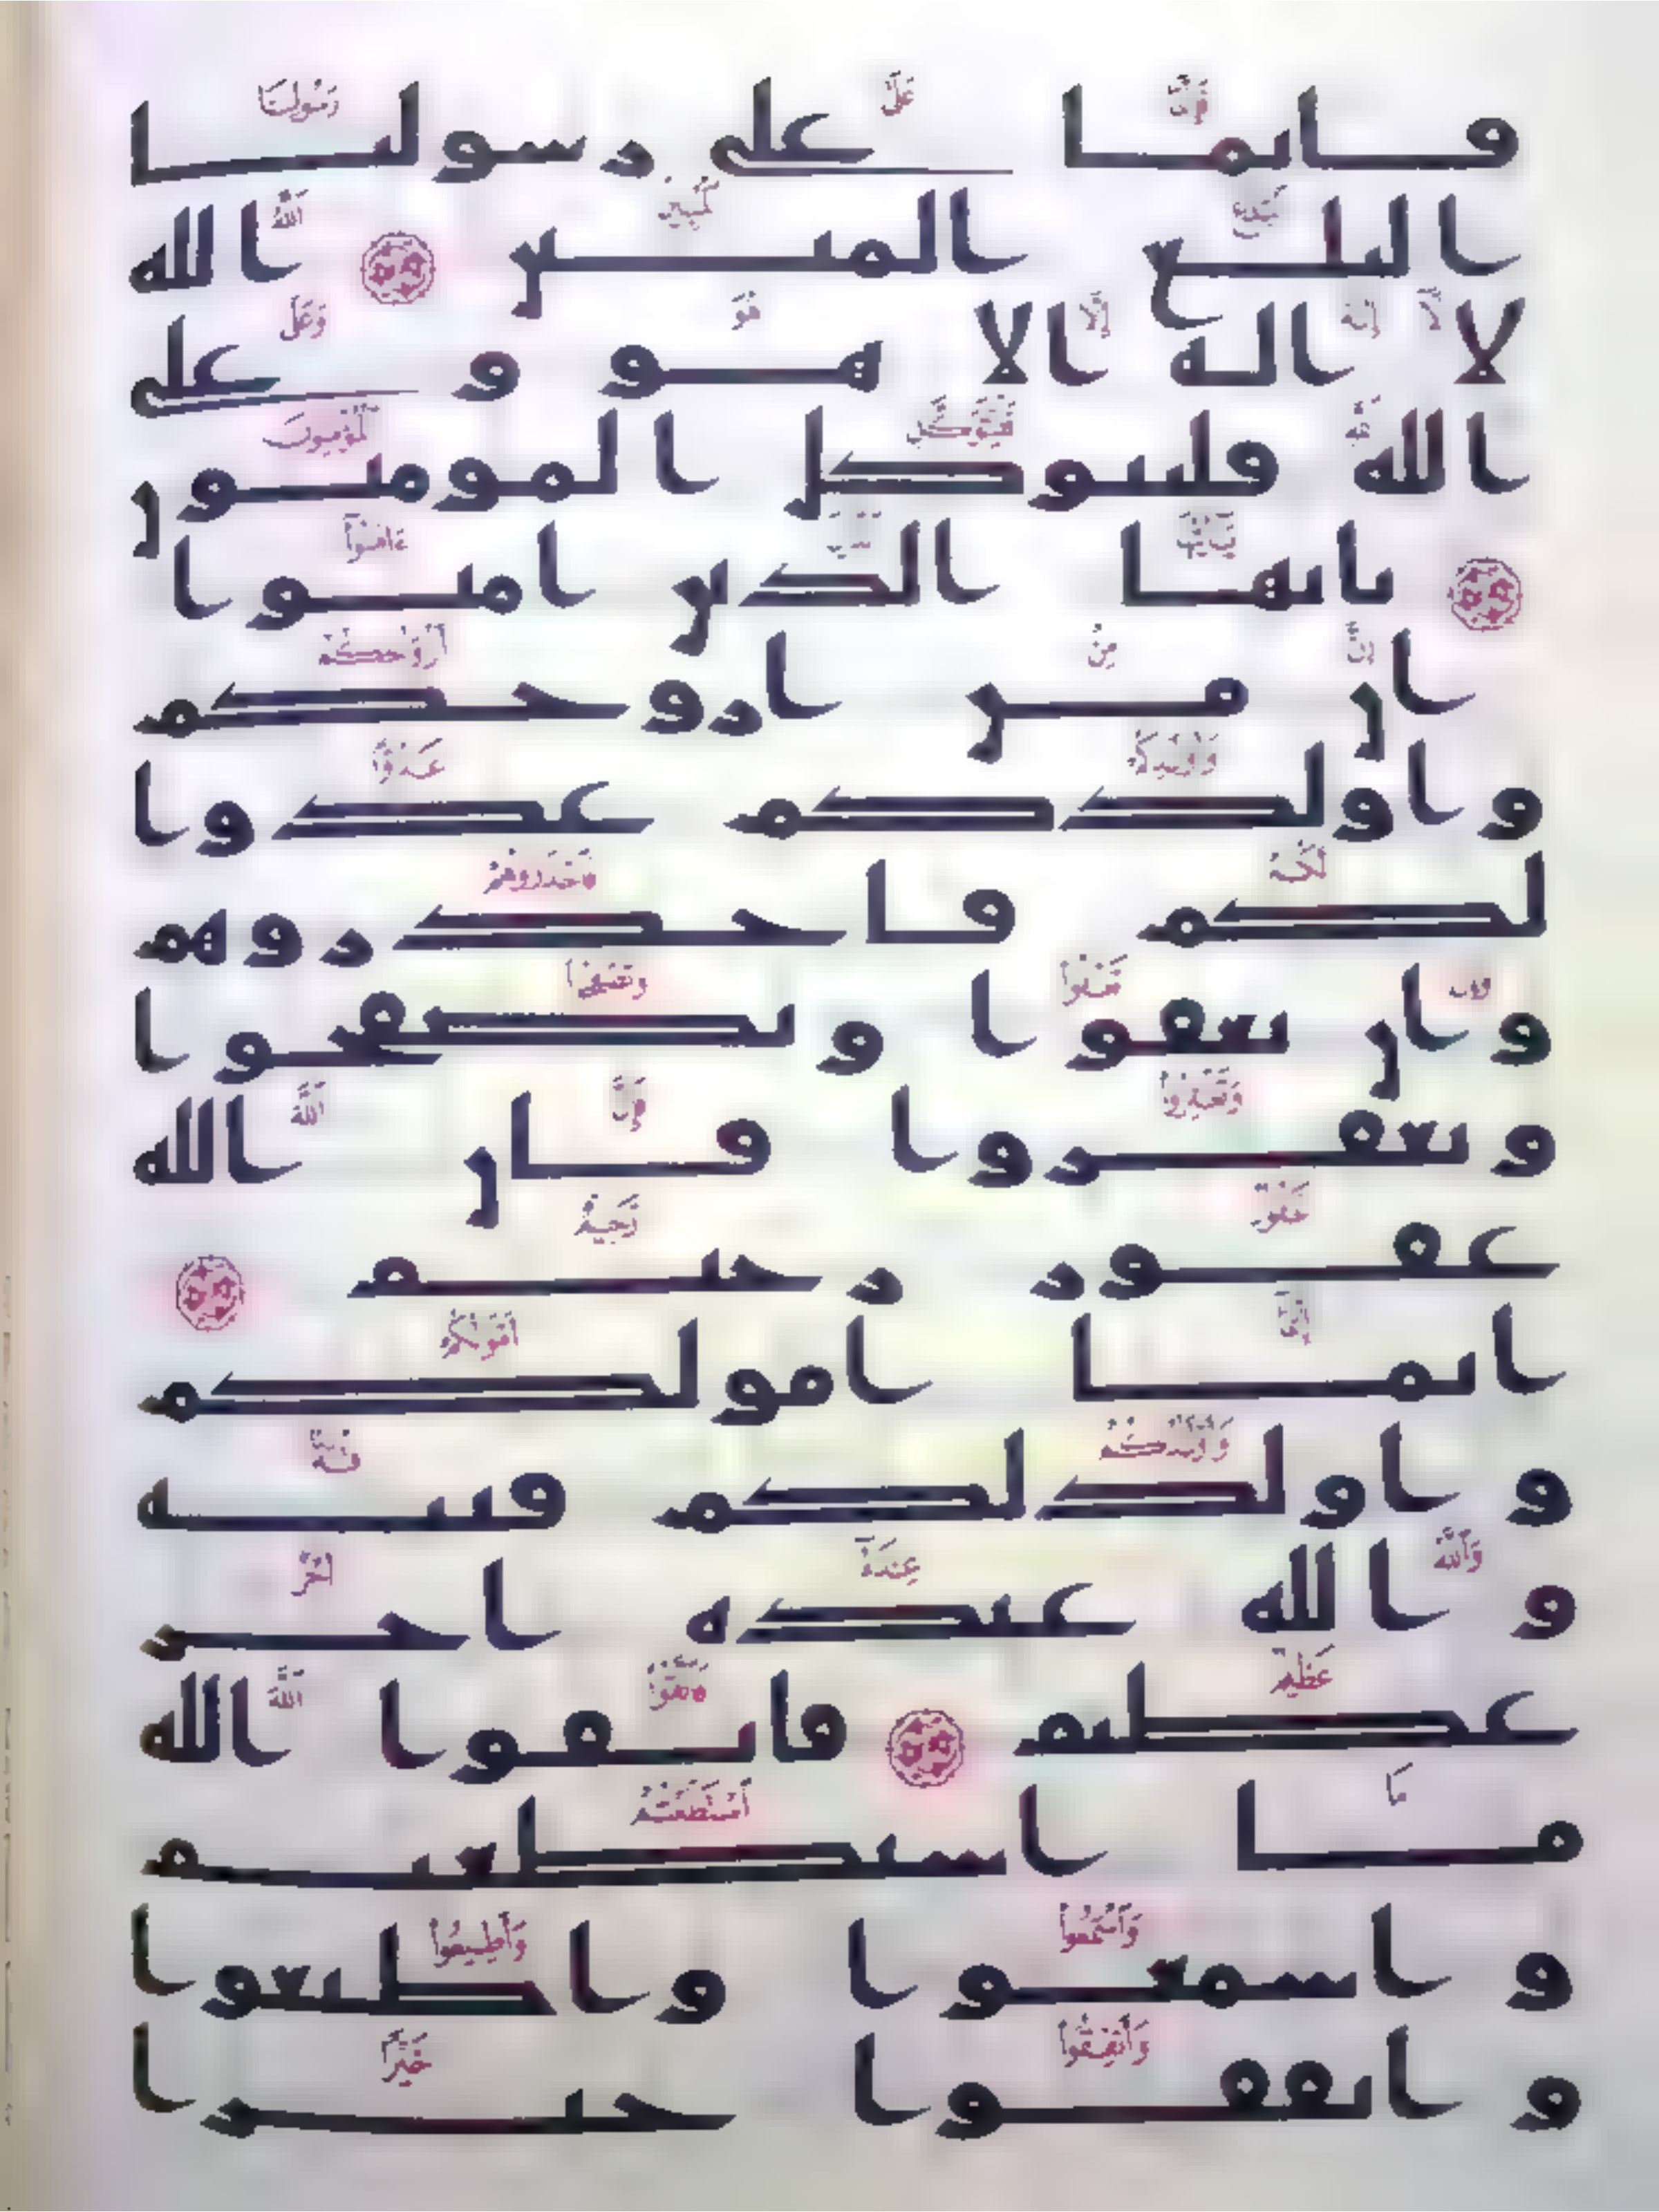 فانما على رسولنا
البلغ المبين الله
لا اله الا هو و على
الله فليتوكل المومنون
يايها الذين امنوا
ان من ازوجكم
و اولدكم عدوا
لكم فاحذروهم
و ان تعفوا و تصفحوا
و تغفروا فان الله
غفور رحيم
انما امولكم
و اولدكم فتنه
و الله عنده اجر
عظيم فاتقوا الله
ما استطعتم
و اسمعوا واطيعوا
و انفقوا خيرا